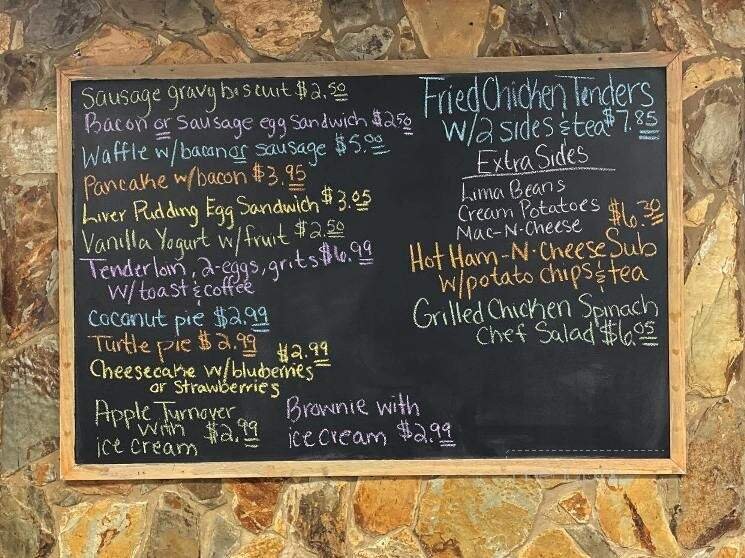 Sausage gravy biscuit $2.50
Bacon or sausage egg sandwich $2.50
Waffle w/bacon or sausage $5.00
Pancake w/bacon $3.95
Liver Pudding Egg Sandwich $3.05
Vanilla Yogurt w/fruit $2.50
Tenderloin, 2-eggs, grits $6.99
w/toast & coffee
coconut pie $2.99
Turtle pie $2.99
Cheesecake w/bluberries $2.99
or Strawberries
Apple Turnover
with
ice cream $2.99
Brownie with
ice cream $2.99
Fried Chicken Tenders
w/2 sides & tea $7.85
Extra Sides
Lima Beans
Cream Potatoes
Mac-N-Cheese
Hot Ham-N-Cheese Sub $6.30
w/potato chips & tea
Grilled Chicken Spinach
Chef Salad $6.05